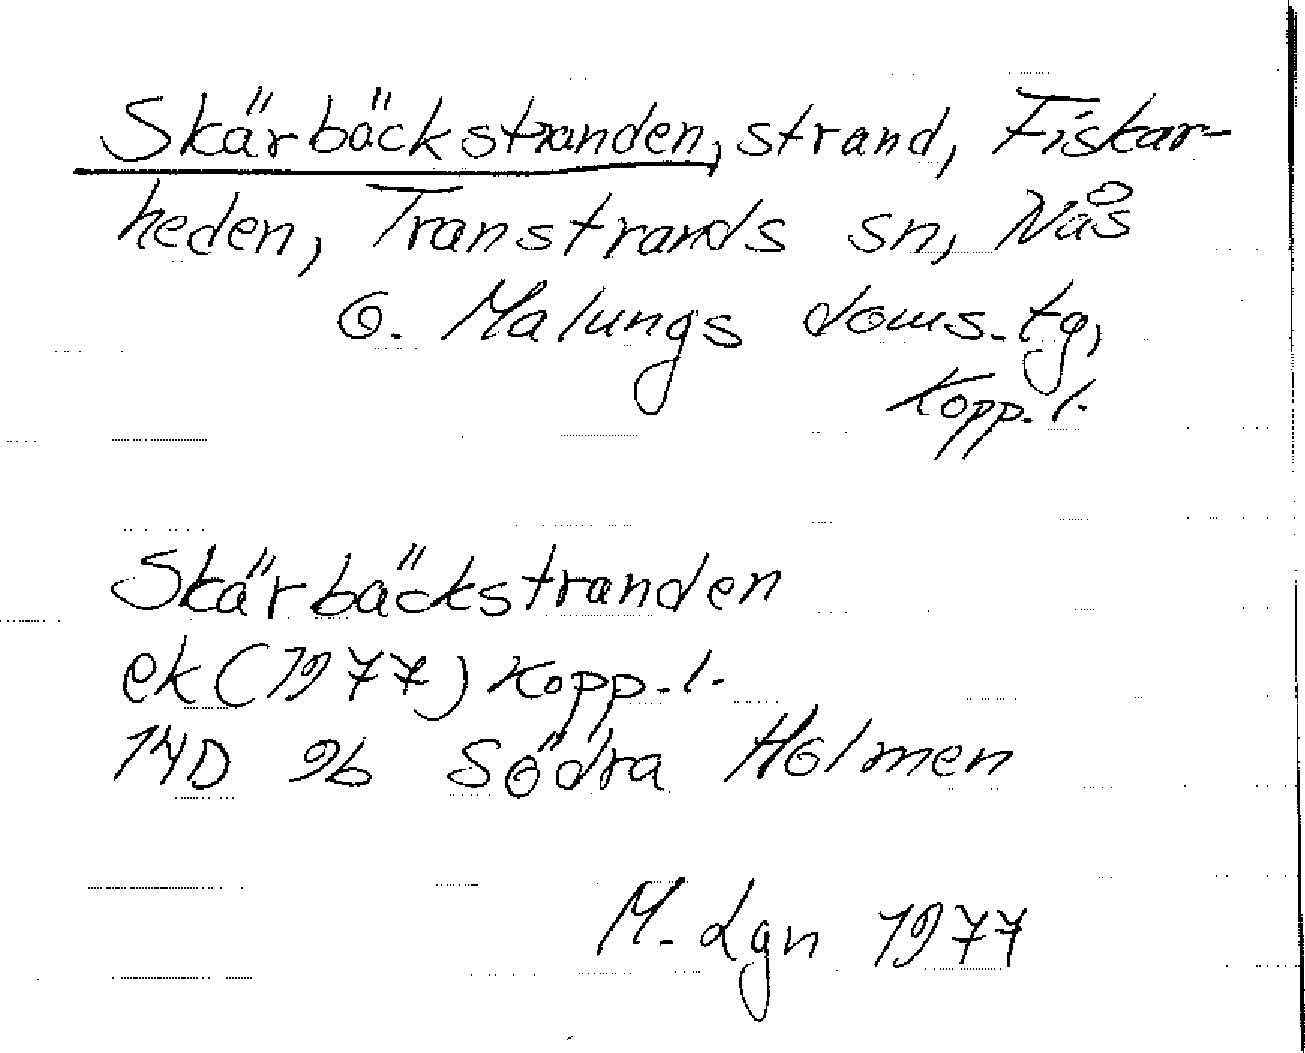 Skärbäckstranden, strand, Fiskar-
heden, Transtrands sn, Nås
o. Malungs doms. tg,
Kopp. l.
Skärbäckstranden
ek (1977) Kopp. l.
14D 9b Södra Holmen
M. Lgn 1977